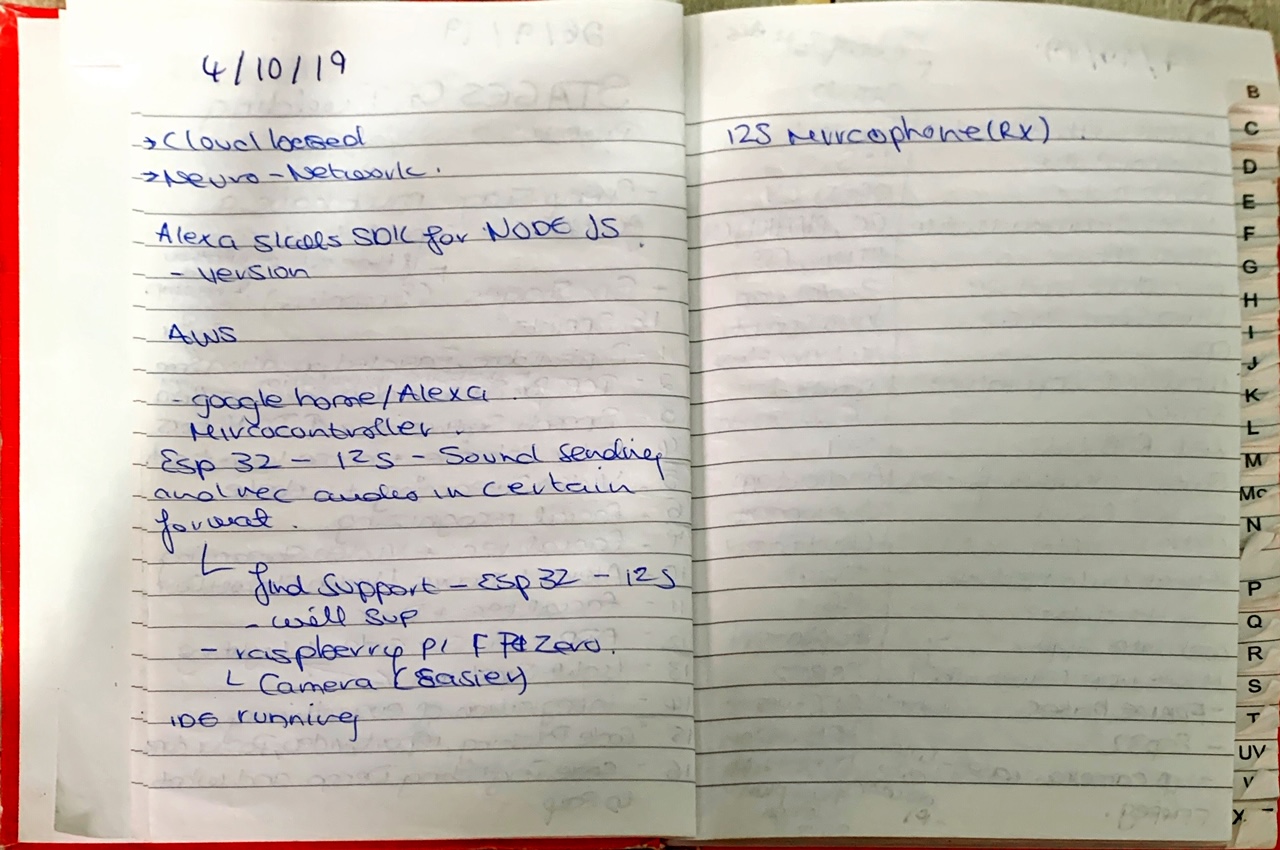 4/10/19
→ Cloud based
→ Neuro-Network.
Alexa skills SDK for NODE JS.
- version
AWS
- google home/Alexa.
Mircocontroller.
Esp 32 - I2S - Sound sending
and rec audio in certain
format.
find support - Esp 32 - I2S
- will sup
- raspberry pi Zero.
Camera (Easier)
IDE running
I2S Mircophone (RX)
B
C
D
E
F
G
H
I
J
K
L
M
Mc
N
P
Q
R
S
T
UV
X